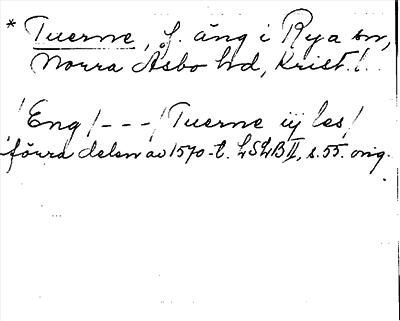 * Tuerne, f. äng i Rya sn,
Norra Åsbo hd, Krist. l.
/Eng/ - - - /Tuerne iij les/
förra delen av 1570-t. LSLB II, s. 55. orig.